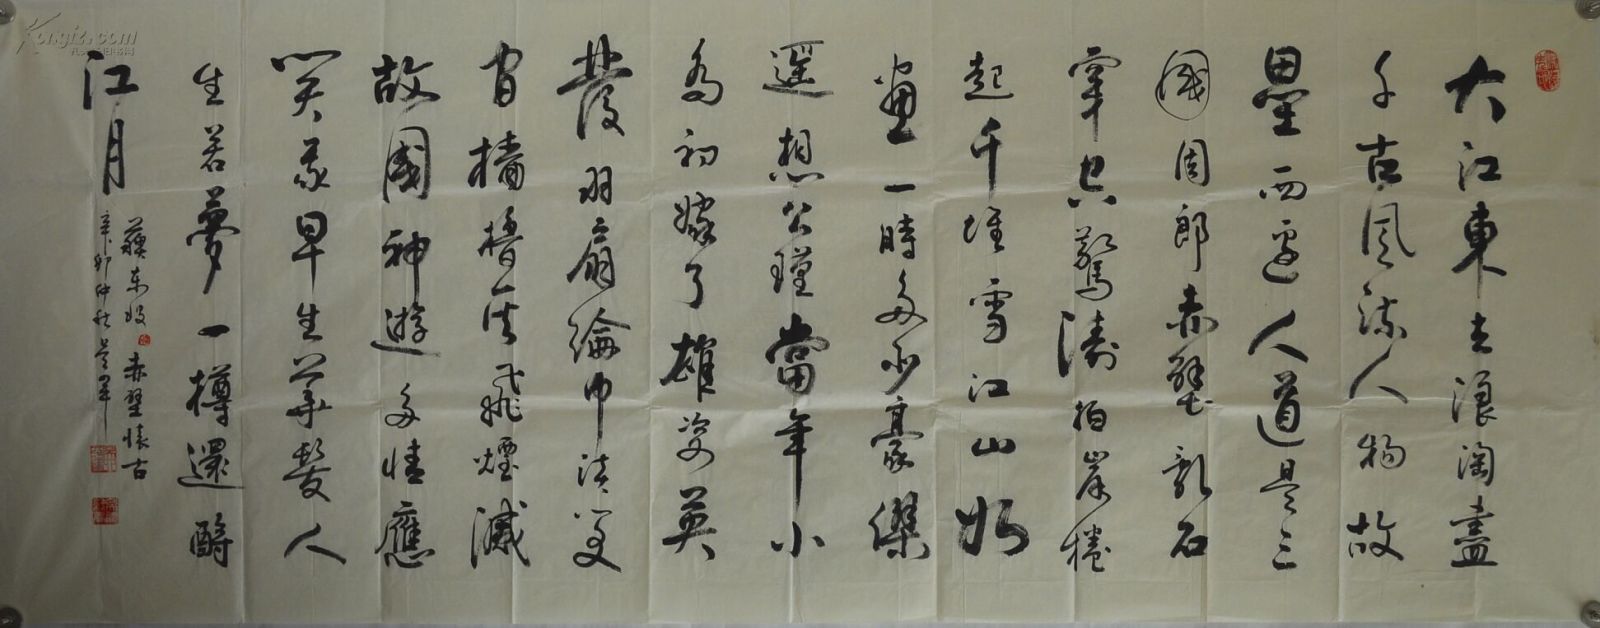 大江東去浪淘盡
千古風流人物故
壘西邊人道是三
國周郎赤壁亂石
穿空驚濤拍岸捲
起千堆雪江山如
畫一時多少豪傑
遥想公瑾當年小
喬初嫁了雄姿英
發羽扇綸巾談笑
間檣櫓灰飛煙滅
故國神遊多情應
笑我早生華髮人
生若夢一樽還酹
江月
蘇東坡赤壁懷古
辛卯仲秋